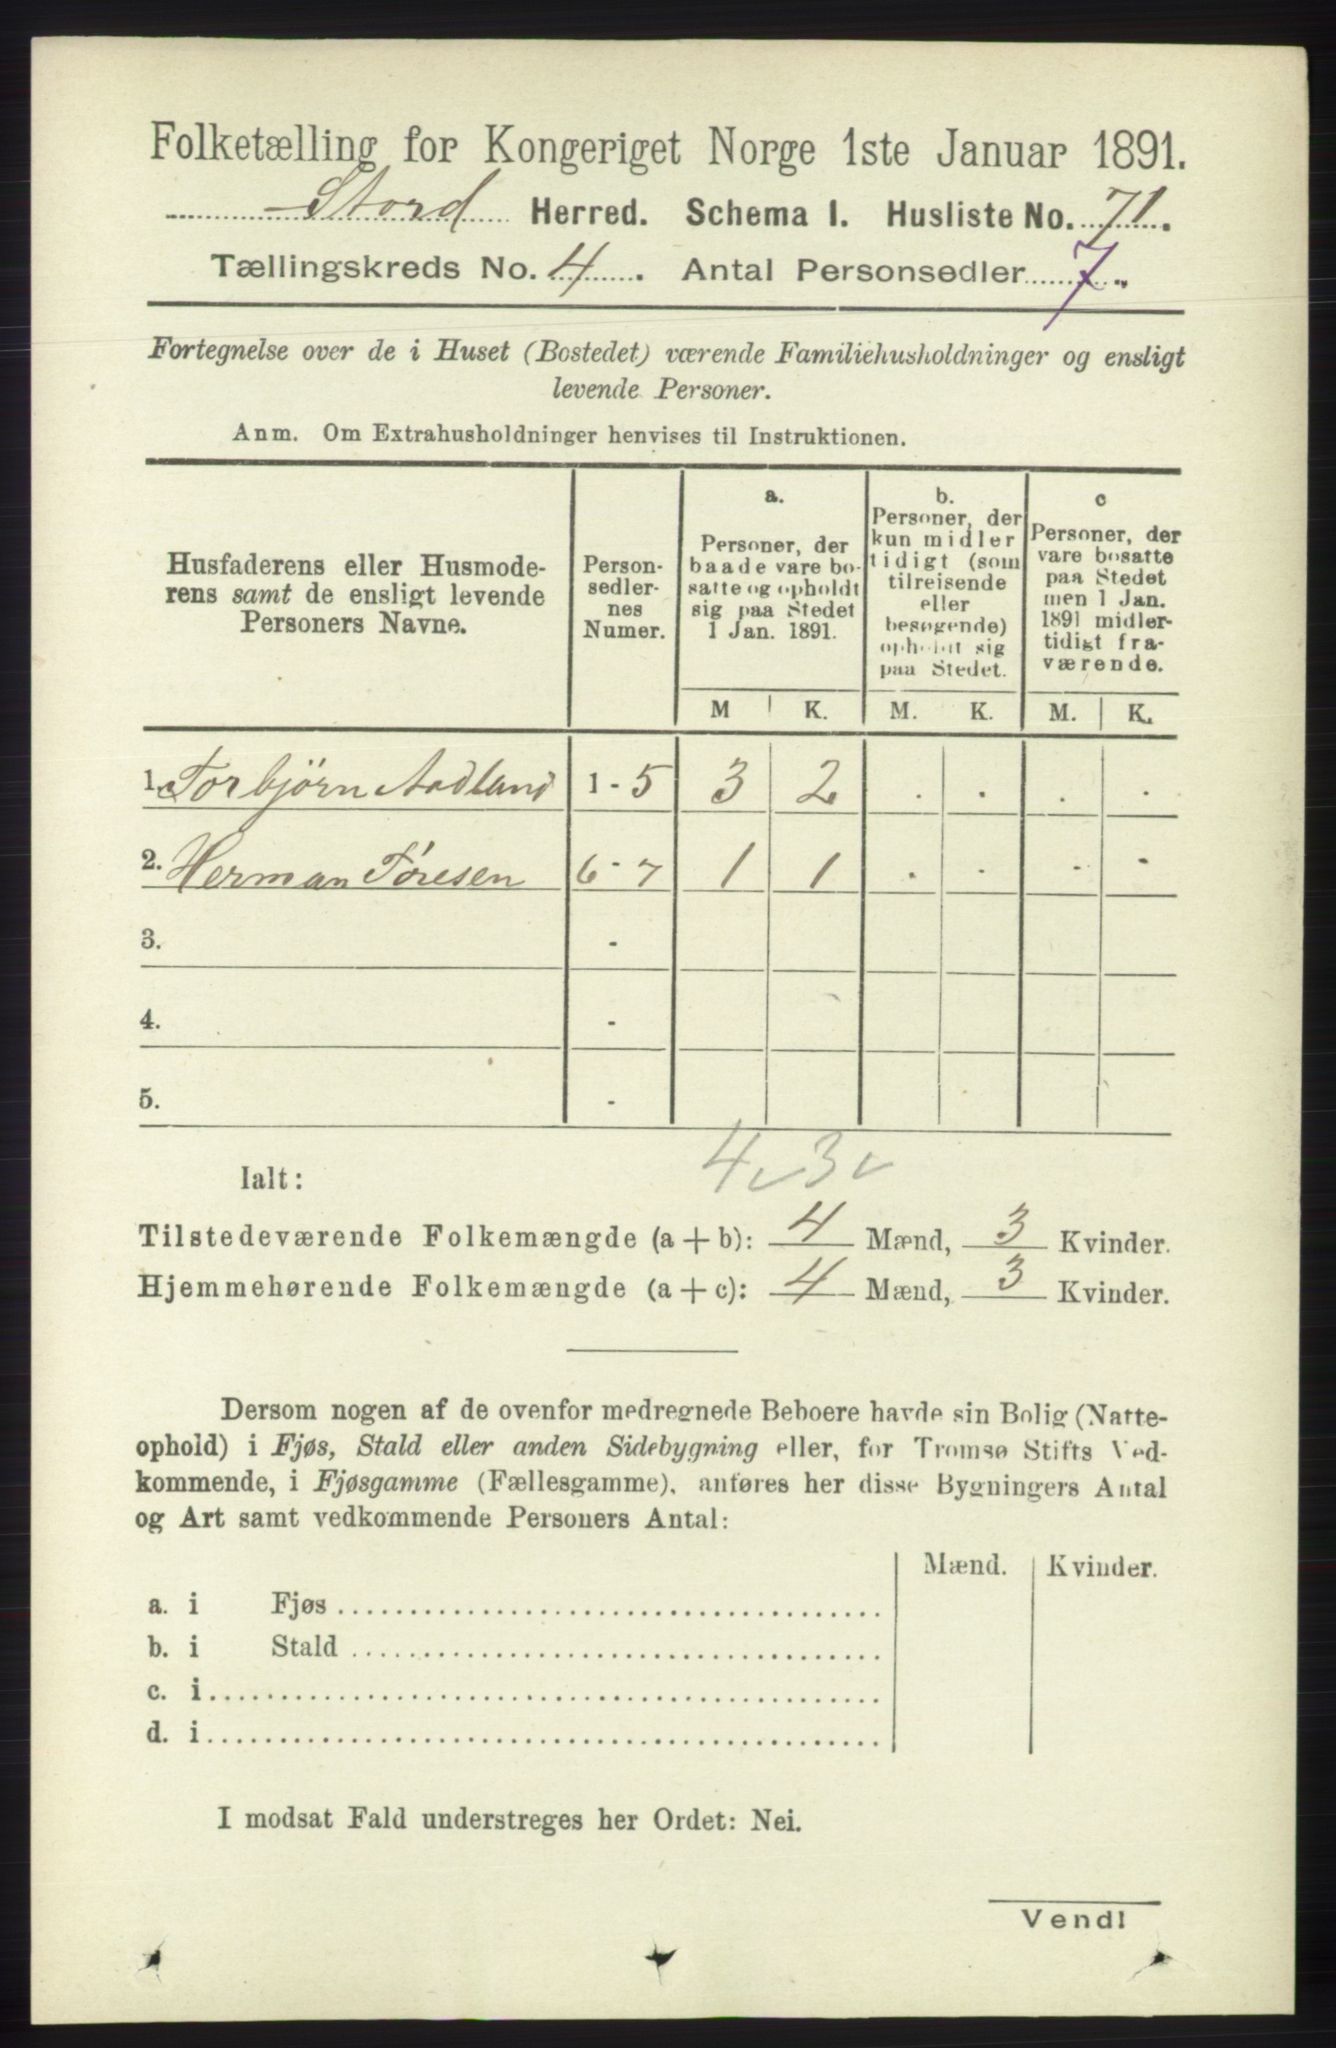 Folketælling for Kongeriget Norge 1ste Januar 1891.
Stord Herred. Schema I. Husliste No. 71.
Tællingskreds No. 4. Antal Personsedler 7.
Fortegnelse over de i Huset (Bostedet) værende Familiehusholdninger og ensligt
levende Personer.
Anm. Om Extrahusholdninger henvises til Instruktionen.
Husfaderens eller Husmode-
rens samt de ensligt levende
Personers Navne.
Person-
sedler-
nes
Numer.
a.
Personer, der
baade vare bo-
satte og opholdt
sig paa Stedet
1 Jan. 1891.
b.
Personer, der
kun midler
tidigt (som
tilreisende
eller
besøgende)
opholdt sig
paa Stedet.
c
Personer, der
vare bosatte
paa Stedet
men 1 Jan.
1891 midler-
tidigt fra-
værende.
M K. M. K. M. K.
1. Torbjørn Aadland 1 - 5 3 2 . . . .
2. Herman Tóresen 6 - 7 1 1 . . . .
3. -
4. -
5. -
4 ✓ 3 ✓
Ialt:
Tilstedeværende Folkemængde (a + b): 4 Mænd, 3 Kvinder.
Hjemmehørende Folkemængde (a + c): 4 Mænd, 3 Kvinder.
Dersom nogen af de ovenfor medregnede Beboere havde sin Bolig (Natte-
ophold) i Fjøs, Stald eller anden Sidebygning eller, for Tromsø Stifts Ved-
kommende, i Fjøsgamme (Fællesgamme), anføres her disse Bygningers Antal
og Art samt vedkommende Personers Antal:
Mænd. Kvinder.
a. i Fjøs
b. i Stald
c. i
d. i
I modsat Fald understreges her Ordet: Nei.
Vend!